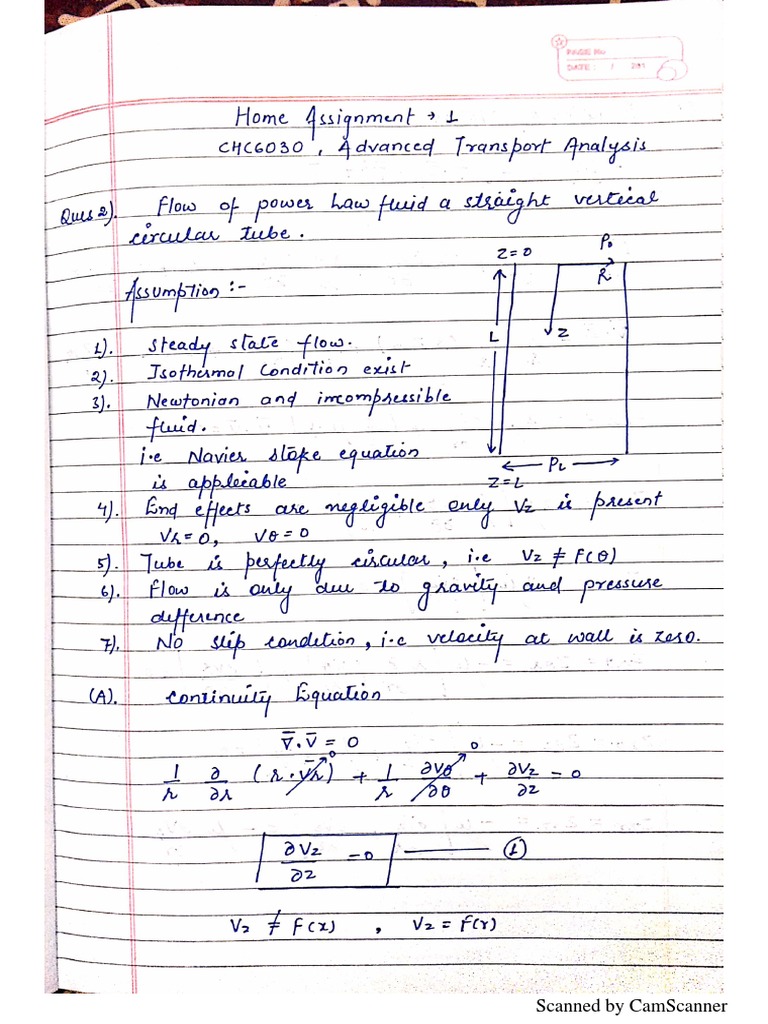 PAGE No
DATE: / 201
Home Assignment → 1
CHC6030, Advanced Transport Analysis
Ques 2). Flow of power Law fluid a straight vertical
circular tube.
Assumption :-
1). Steady state flow.
2). Isothermal Condition exist
3). Newtonian and incompressible
fluid.
i.e Navier stoke equation
is applicable
Z=0
P₀
R
L
Z
P_L
Z=L
4). End effects are negligible only Vz is present
Vr=0, Vθ=0
5). Tube is perfectly circular, i.e Vz ≠ F(θ)
6). Flow is only due to gravity and pressure
difference
7). No slip condition, i.e velocity at wall is zero.
(A). Continuity Equation
∇̄.V̄ = 0
1/r ∂/∂r (r.vr) 0 + 1/r ∂Vθ/∂θ 0 + ∂Vz/∂z = 0
∂Vz/∂z = 0 —— ①
Vz ≠ F(z) , Vz = F(r)
Scanned by CamScanner